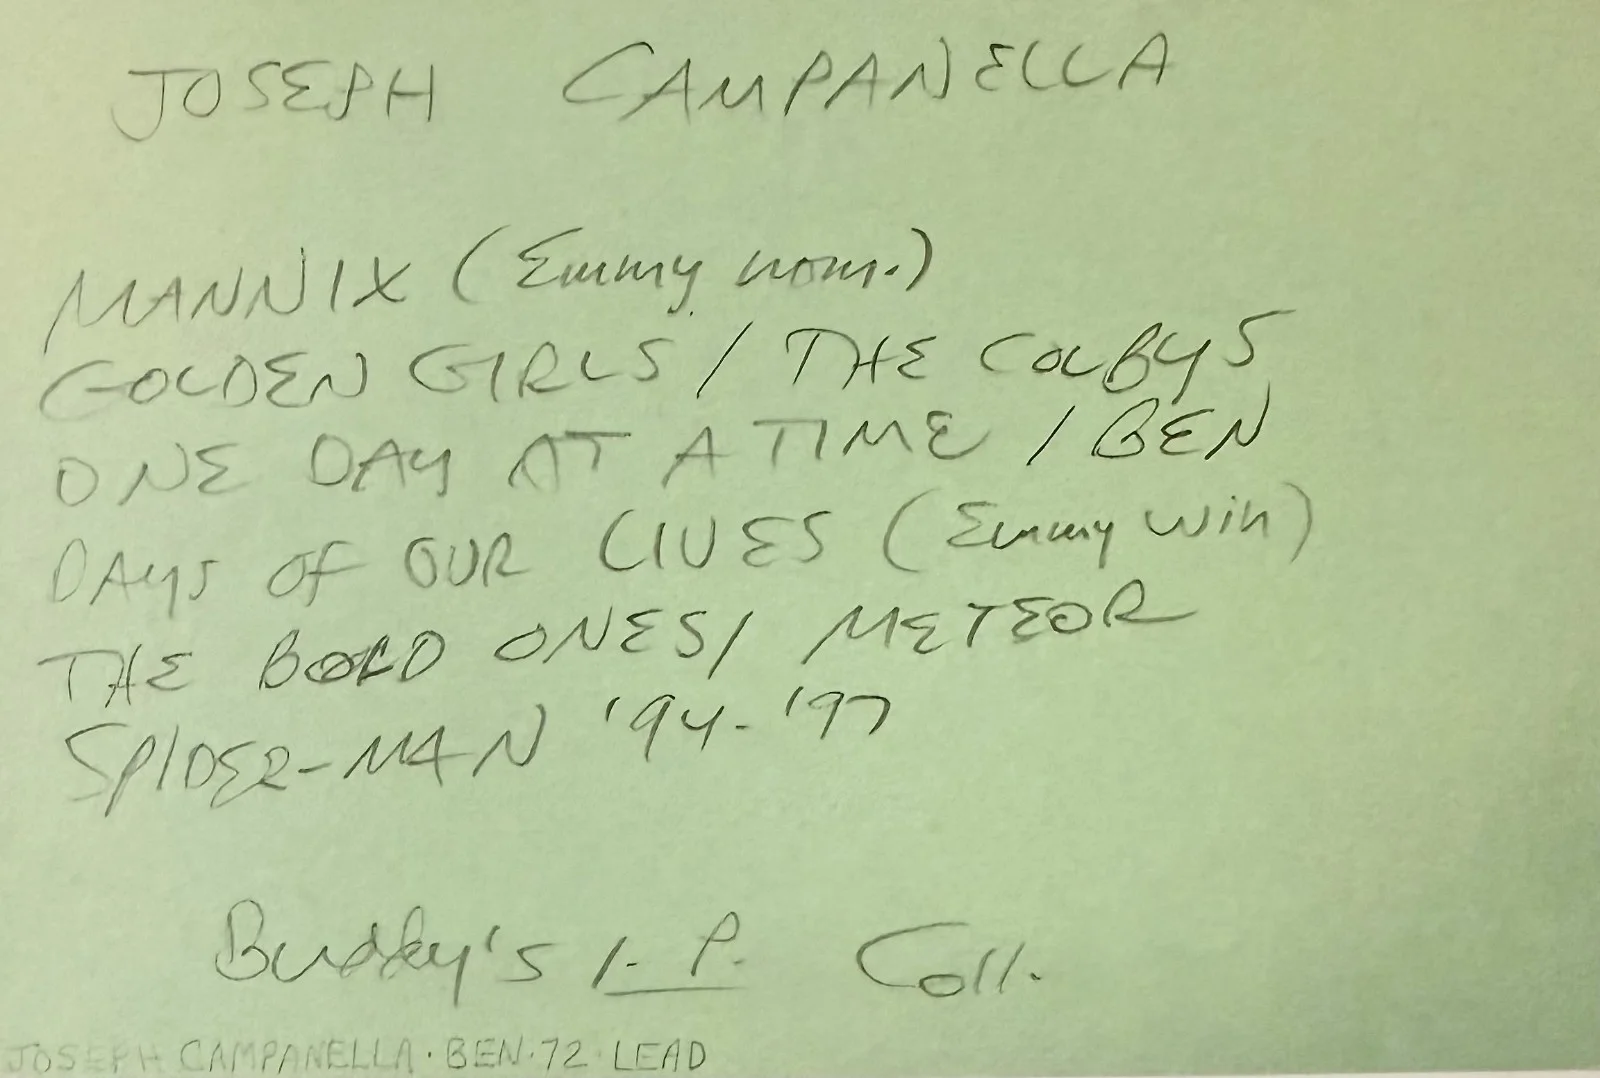 JOSEPH CAMPANELLA
MANNIX (Emmy nom.)
GOLDEN GIRLS / THE COLBYS
ONE DAY AT A TIME / BEN
DAYS OF OUR LIVES (Emmy win)
THE BOLD ONES / METEOR
SPIDER-MAN '94-'97
Buddy's I.P. Coll.
JOSEPH CAMPANELLA · BEN · 72 · LEAD